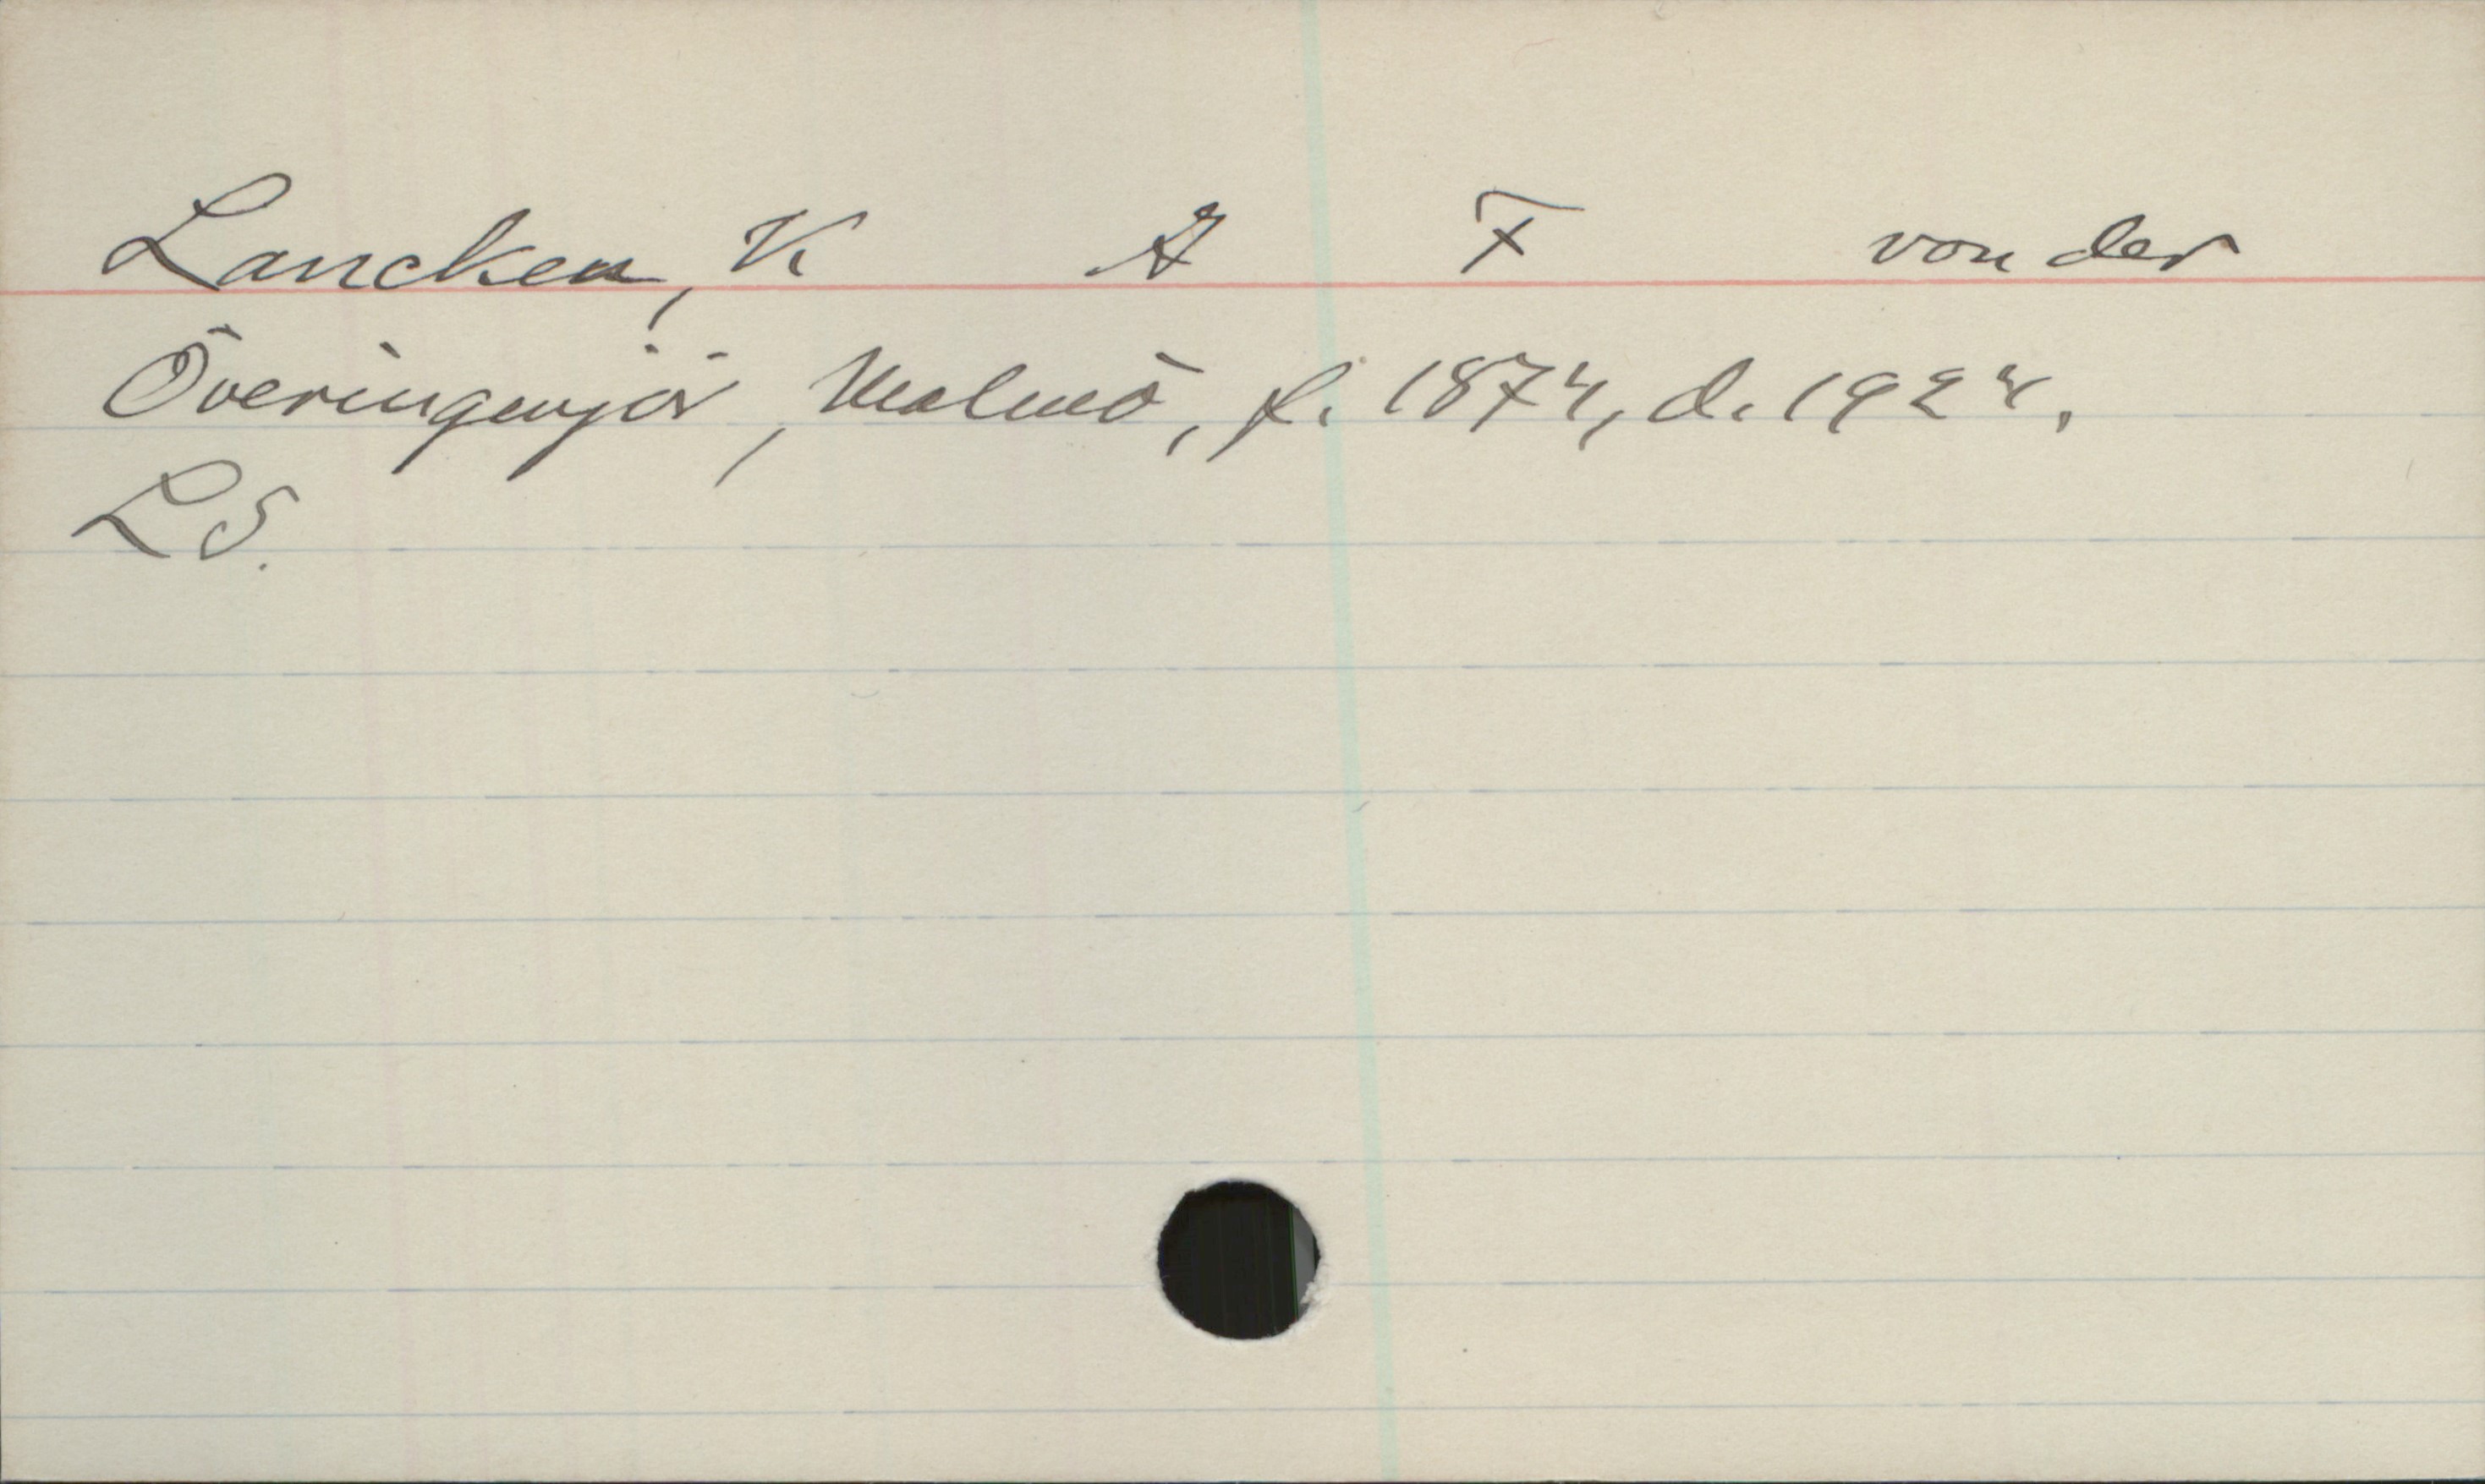 Lancken, K A F von der
Överingenjör, Malmö, f. 1874, d. 1924.
LS.